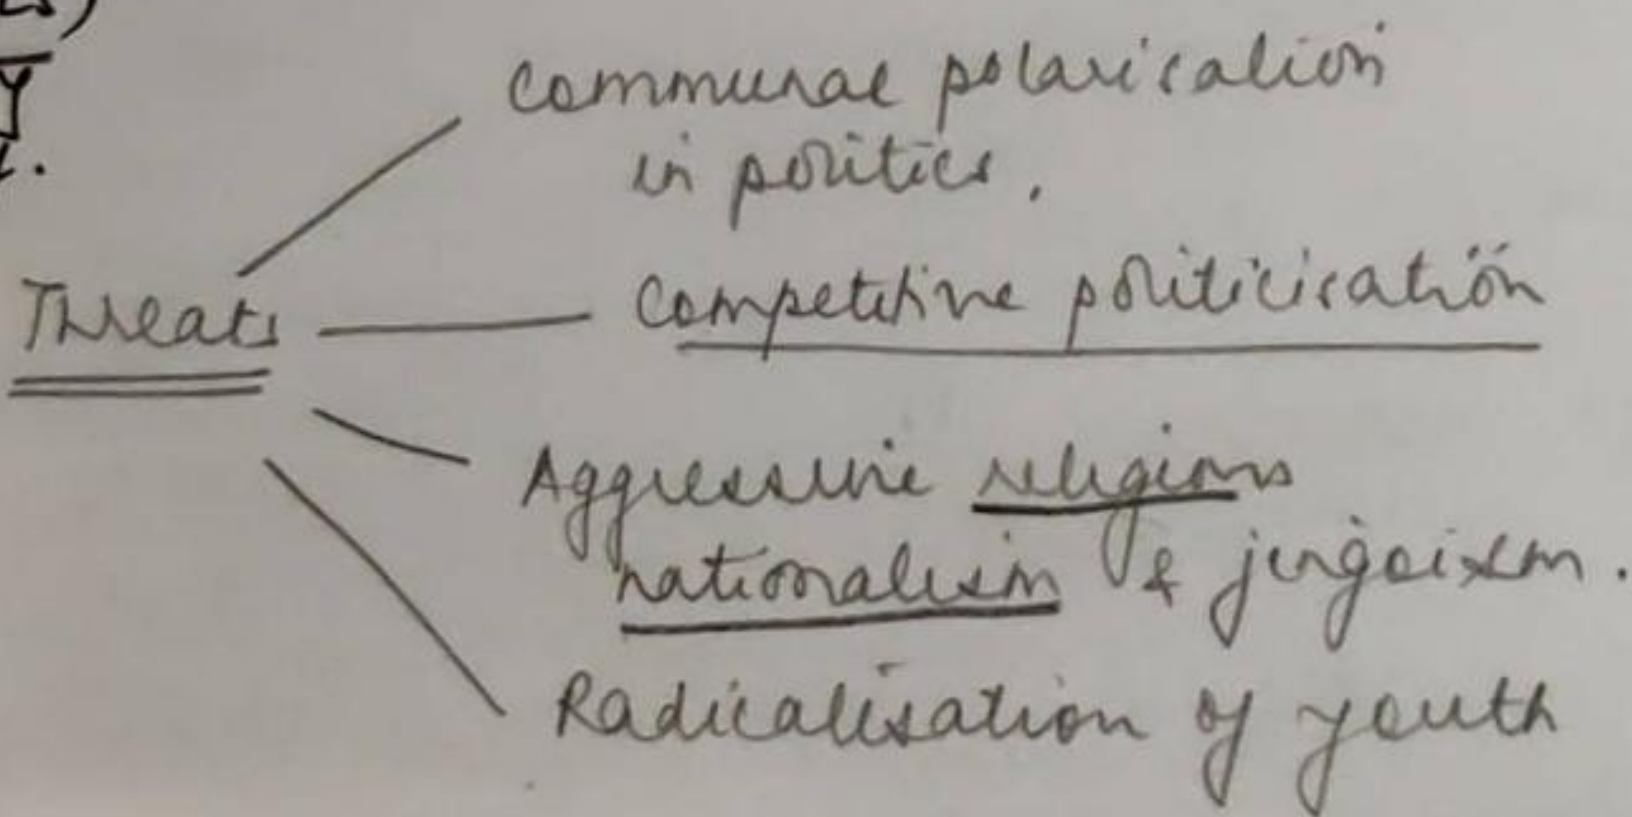 Communal polarisation
in politics.
Threats
Competitive politicisation
Aggressive religious
nationalism & jingoism.
Radicalisation of youth